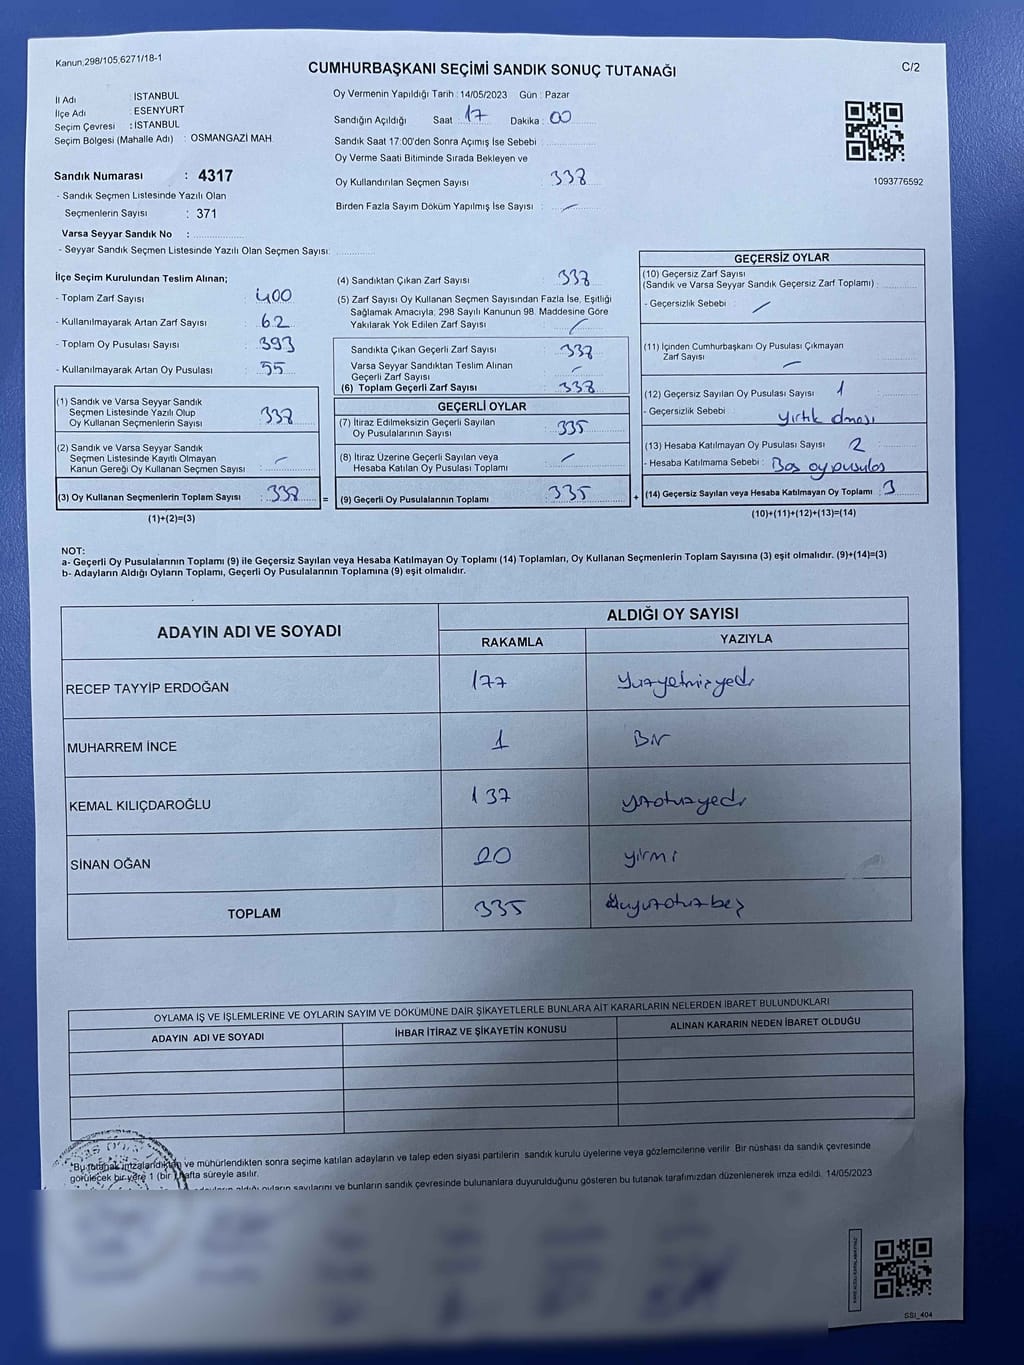 Kanun 298/105,6271/18-1
CUMHURBAŞKANI SEÇİMİ SANDIK SONUÇ TUTANAĞI
C/2
İl Adı : İSTANBUL
İlçe Adı : ESENYURT
Seçim Çevresi : İSTANBUL
Seçim Bölgesi (Mahalle Adı) : OSMANGAZİ MAH.
Sandık Numarası : 4317
- Sandık Seçmen Listesinde Yazılı Olan
Seçmenlerin Sayısı : 371
Varsa Seyyar Sandık No :
- Seyyar Sandık Seçmen Listesinde Yazılı Olan Seçmen Sayısı:
Oy Vermenin Yapıldığı Tarih : 14/05/2023 Gün : Pazar
Sandığın Açıldığı Saat : 17 Dakika : 00
Sandık Saat 17:00'den Sonra Açımış İse Sebebi :
Oy Verme Saati Bitiminde Sırada Bekleyen ve
Oy Kullandırılan Seçmen Sayısı : 338
Birden Fazla Sayım Döküm Yapılmış İse Sayısı : -
1093776592
İlçe Seçim Kurulundan Teslim Alınan;
- Toplam Zarf Sayısı : 400
- Kullanılmayarak Artan Zarf Sayısı : 62
- Toplam Oy Pusulası Sayısı : 393
- Kullanılmayarak Artan Oy Pusulası : 55
(1) Sandık ve Varsa Seyyar Sandık
Seçmen Listesinde Yazılı Olup
Oy Kullanan Seçmenlerin Sayısı : 338
(2) Sandık ve Varsa Seyyar Sandık
Seçmen Listesinde Kayıtlı Olmayan
Kanun Gereği Oy Kullanan Seçmen Sayısı : -
(3) Oy Kullanan Seçmenlerin Toplam Sayısı : 338
(1)+(2)=(3)
=
(4) Sandıktan Çıkan Zarf Sayısı : 338
(5) Zarf Sayısı Oy Kullanan Seçmen Sayısından Fazla İse, Eşitliği
Sağlamak Amacıyla; 298 Sayılı Kanunun 98. Maddesine Göre
Yakılarak Yok Edilen Zarf Sayısı : -
Sandıkta Çıkan Geçerli Zarf Sayısı : 338
Varsa Seyyar Sandıktan Teslim Alınan
Geçerli Zarf Sayısı : -
(6) Toplam Geçerli Zarf Sayısı : 338
GEÇERLİ OYLAR
(7) İtiraz Edilmeksizin Geçerli Sayılan
Oy Pusulalarının Sayısı : 335
(8) İtiraz Üzerine Geçerli Sayılan veya
Hesaba Katılan Oy Pusulası Toplamı : -
(9) Geçerli Oy Pusulalarının Toplamı : 335
+
GEÇERSİZ OYLAR
(10) Geçersiz Zarf Sayısı
(Sandık ve Varsa Seyyar Sandık Geçersiz Zarf Toplamı) :
- Geçersizlik Sebebi : -
(11) İçinden Cumhurbaşkanı Oy Pusulası Çıkmayan
Zarf Sayısı : -
(12) Geçersiz Sayılan Oy Pusulası Sayısı : 1
- Geçersizlik Sebebi : yırtık olması
(13) Hesaba Katılmayan Oy Pusulası Sayısı : 2
- Hesaba Katılmama Sebebi : Boş oy pusulası
(14) Geçersiz Sayılan veya Hesaba Katılmayan Oy Toplamı : 3
(10)+(11)+(12)+(13)=(14)
NOT:
a- Geçerli Oy Pusulalarının Toplamı (9) ile Geçersiz Sayılan veya Hesaba Katılmayan Oy Toplamı (14) Toplamları, Oy Kullanan Seçmenlerin Toplam Sayısına (3) eşit olmalıdır. (9)+(14)=(3)
b- Adayların Aldığı Oyların Toplamı, Geçerli Oy Pusulalarının Toplamına (9) eşit olmalıdır.
ADAYIN ADI VE SOYADI
ALDIĞI OY SAYISI
RAKAMLA YAZIYLA
RECEP TAYYİP ERDOĞAN 177 yüzyetmişyedi
MUHARREM İNCE 1 Bir
KEMAL KILIÇDAROĞLU 137 yüzotuzyedi
SİNAN OĞAN 20 yirmi
TOPLAM 335 üçyüzotuzbeş
OYLAMA İŞ VE İŞLEMLERİNE VE OYLARIN SAYIM VE DÖKÜMÜNE DAİR ŞİKAYETLERLE BUNLARA AİT KARARLARIN NELERDEN İBARET BULUNDUKLARI
ADAYIN ADI VE SOYADI İHBAR İTİRAZ VE ŞİKAYETİN KONUSU ALINAN KARARIN NEDEN İBARET OLDUĞU
*Bu tutanak imzalandıktan ve mühürlendikten sonra seçime katılan adayların ve talep eden siyasi partilerin sandık kurulu üyelerine veya gözlemcilerine verilir. Bir nüshası da sandık çevresinde
görülecek bir yere 1 (bir) hafta süreyle asılır.
aldığı oyların sayılarını ve bunların sandık çevresinde bulunanlara duyurulduğunu gösteren bu tutanak tarafımızdan düzenlenerek imza edildi. 14/05/2023
SSİ_404